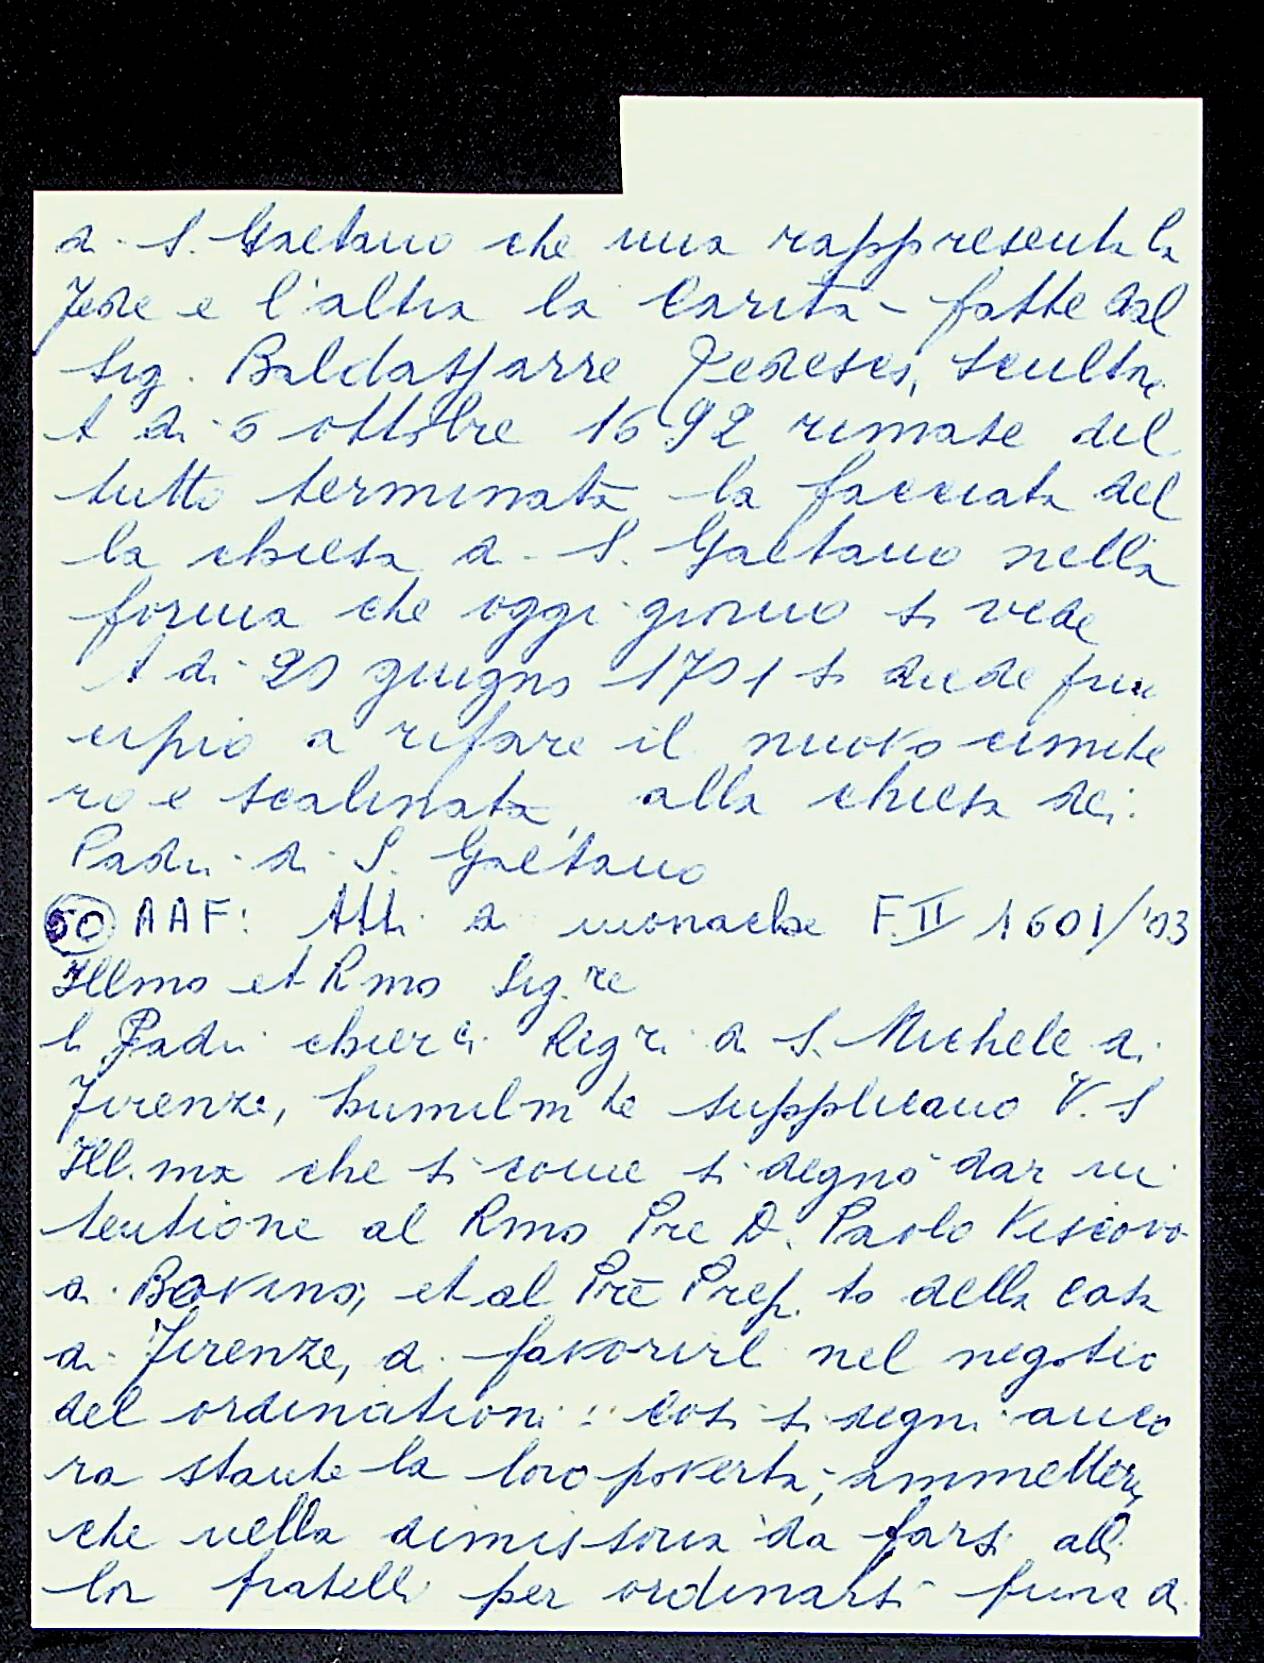 di S. Gaetano che una rappresenta la
Fede e l'altra la Carità - fatte dal
Sig. Baldassarre Tedesco, scultore
A di 6 ottobre 1692 rimase del
tutto terminata la facciata del
la chiesa di S. Gaetano nella
forma che oggi giorno si vede
A di 20 giugno 1701 si diede prin
cipio a rifare il nuovo cimite
ro e scalinata, alla chiesa dei
Padri di S. Gaetano
50 AAF: Atti di monache F. II 1601/'03
Illmo et Rmo Sig.re
li Padri chierci Regri di S. Michele di
Firenze, humilmte supplicano V. S
Ill.ma che si come si degnò dar in
tentione al Rmo Pre D. Paolo Vescovo
di Bovino, et al Pre Prep.to della casa
di Firenze, di favorirli nel negotio
del ordinationi: così si degni anco
ra stante la loro povertà, ammettere,
che nella dimissoria da farsi alli
lor fratelli per ordinarsi fuora di